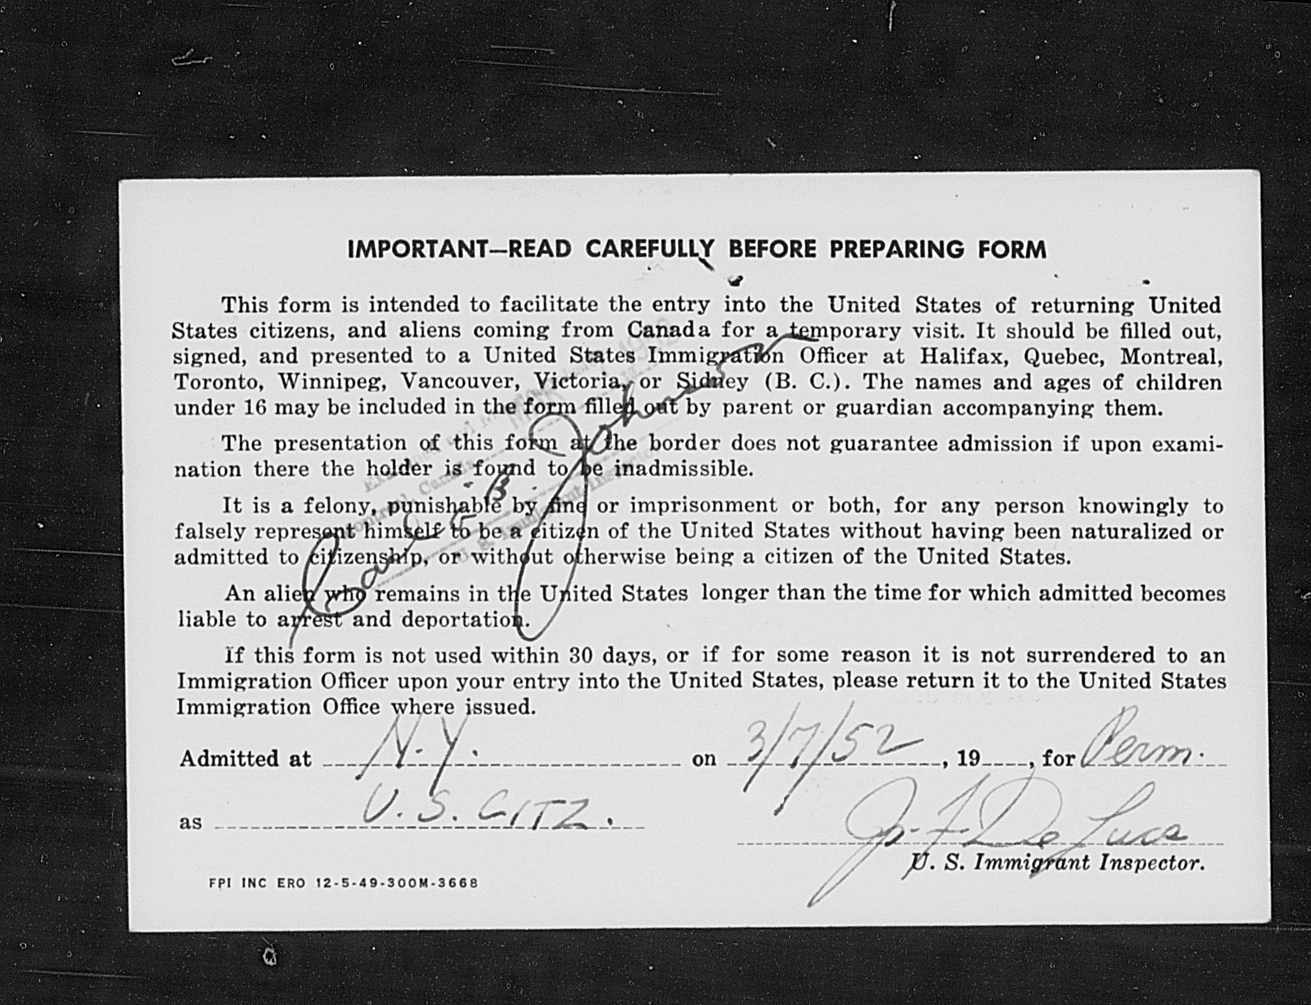 IMPORTANT—READ CAREFULLY BEFORE PREPARING FORM
This form is intended to facilitate the entry into the United States of returning United
States citizens, and aliens coming from Canada for a temporary visit. It should be filled out,
signed, and presented to a United States Immigration Officer at Halifax, Quebec, Montreal,
Toronto, Winnipeg, Vancouver, Victoria, or Sidney (B. C.). The names and ages of children
under 16 may be included in the form filled out by parent or guardian accompanying them.
The presentation of this form at the border does not guarantee admission if upon exami-
nation there the holder is found to be inadmissible.
It is a felony, punishable by fine or imprisonment or both, for any person knowingly to
falsely represent himself to be a citizen of the United States without having been naturalized or
admitted to citizenship, or without otherwise being a citizen of the United States.
An alien who remains in the United States longer than the time for which admitted becomes
liable to arrest and deportation.
If this form is not used within 30 days, or if for some reason it is not surrendered to an
Immigration Officer upon your entry into the United States, please return it to the United States
Immigration Office where issued.
Admitted at N.Y. on 3/7/52, 19, for Perm.
as U.S. CITZ.
J. F. De Luca
U. S. Immigrant Inspector.
FPI INC ERO 12-5-49-300M-3668
B. Johnson
Montreal, Canada
U. S. Immigrant Inspector